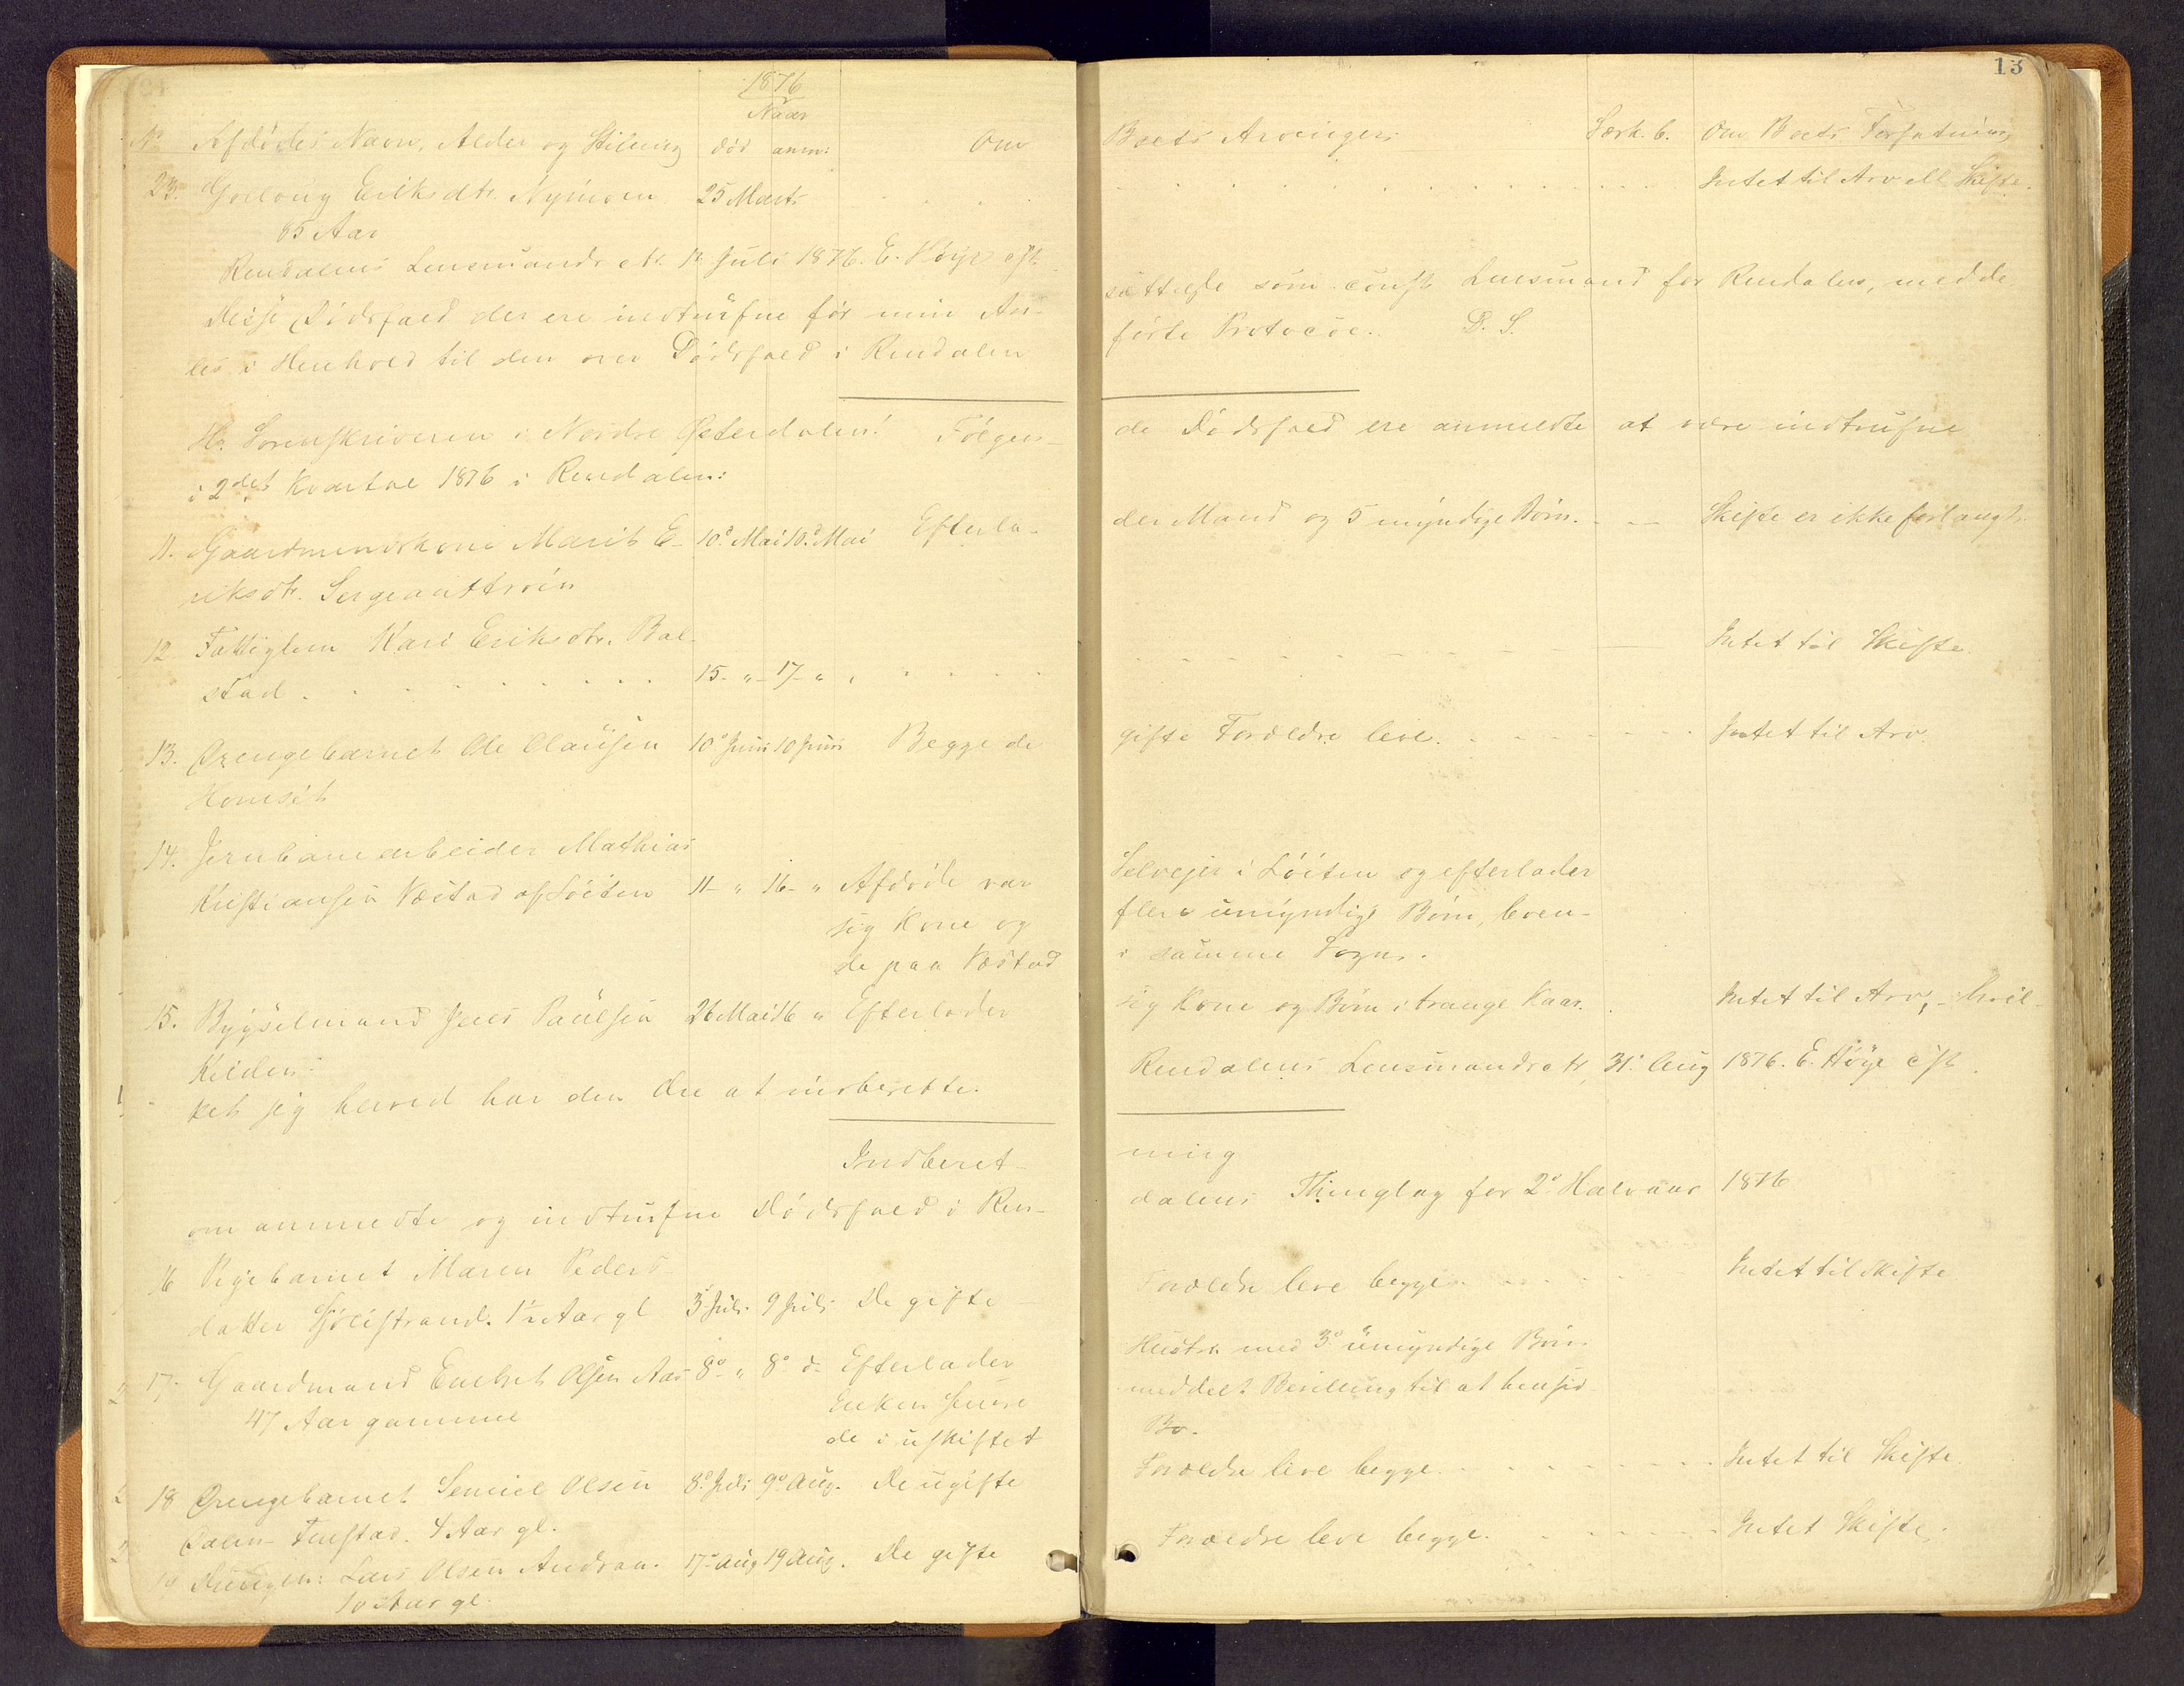 13
1876
Naar
No Afdødes Navn, Alder og Stilling død anm: Om Boets Arvinger. Særk. b. Om Boets Forfatning
23. Eriksdtr. Nymoen 25 Marts Intet til Arv ell Skifte.
65 Aar
Rendalens Lensmandsktr. 12 Juli 1876. E. Høye cst.
Disse Dødsfald der ere indtrufne før min An-
sættelse som const Lensmand for Rendalen, medde
les i Henhold til den over Dødsfald i Rendalen
førte Protocol. D. S.
Hr. Sorenskriveren i Nordre Østerdalen! Følgen-
de Dødsfald ere anmeldte at være indtrufne
i 2det Kvartal 1876 i Rendalen:
11. Gaardmandskone Marit E- 10d Mai 10d Mai Efterla-
der Mand og 5 myndige Børn. Skifte er ikke forlangt.
riksdtr. Sergeanttrøen
12. Fattiglem Kari Eriksdtr. Bal-
stad 15 " 17 " Intet til Skifte.
13. Drengebarnet Ole Olausen 10d Juni 10 Juni Begge de
gifte Forældre leve. Intet til Arv.
Homset
14. Jernbanearbeider Mathias
Kristiansen Næstad af Løiten 11 " 16 " Afdøde var
Selvejer i Løiten og efterlader
sig Kone og
flere umyndige Børn, boen-
de paa Næstad
i samme Sogn.
15. Bygselmand Jens Paulsen 26 Mai 16 " Efterlader
sig Kone og Børn i trange Kaar. Intet til Arv, hvil-
Kilden.
ket jeg herved har den Ære at indberette.
Rendalens Lensmandsktr. 31. Aug 1876. E. Høye cst.
Indberet-
ning
om anmeldte og indtrufne Dødsfald i Ren-
dalens Thinglag for 2d Halvaar 1876
16 Pigebarnet Maren Peders-
datter Sjølistrand. 1½ Aar gl 5 Juli 9 Juli De gifte
Forældre leve begge. Intet til Skifte
17. Gaardmand Engebret Olsen Aas 8d " 8d d. Efterlader
Hustru med 3 umyndige Børn
47 Aar gammel Enken
meddelt Bevilling til at hensid-
de i uskiftet
Bo.
18 Drengebarnet Olsen 8d Juli 9d Aug. De ugifte
Forældre leve begge. Intet til Skifte.
4 Aar gl.
19 Drengen: Lars Olsen 17 Aug 19 Aug. De gifte
Forældre leve begge. Intet Skifte.
10 Aar gl.